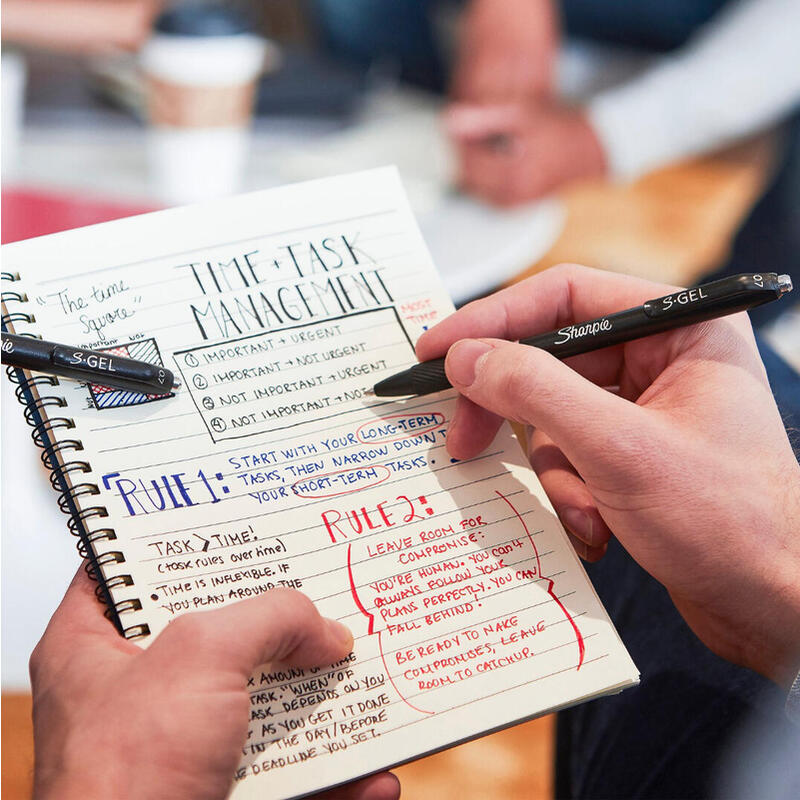 "The time
Square"
TIME + TASK
MANAGEMENT
MOST
TIME
Important Not
① IMPORTANT + URGENT
② IMPORTANT + NOT URGENT
③ NOT IMPORTANT + URGENT
④ NOT IMPORTANT + NO
Sharpie S·GEL 0.7
S·GEL 0.7
RULE 1: START WITH YOUR LONG-TERM
TASKS, THEN NARROW DOWN T
YOUR SHORT-TERM TASKS.
TASK > TIME!
(task rules over time)
• TIME IS INFLEXIBLE. IF
YOU PLAN AROUND THE
X AMOUNT OF TIME
TASK. "WHEN" OF
ASK DEPENDS ON YOU
AS YOU GET IT DONE
IN THE DAY/BEFORE
HE DEADLINE YOU SET.
RULE 2:
LEAVE ROOM FOR
COMPROMISE:
YOU'RE HUMAN. YOU CAN'T
ALWAYS FOLLOW YOUR
PLANS PERFECTLY. YOU CAN
FALL BEHIND!
BE READY TO MAKE
COMPROMISES, LEAVE
ROOM TO CATCHUP.